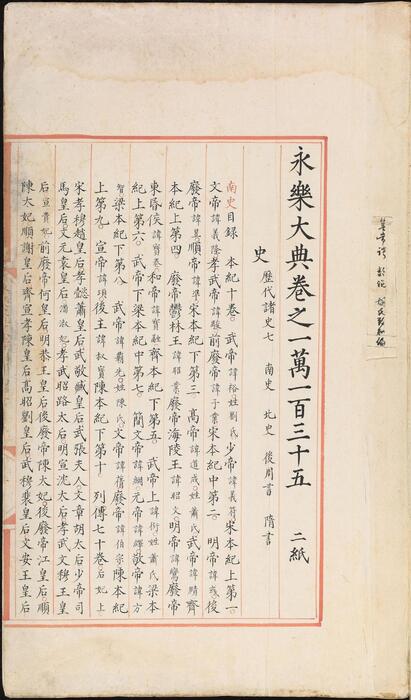 永樂大典卷之一萬一百三十五 二紙
史 歷代諸史七 南史 北史 後周書 隋書
南史目錄 本紀十卷。武帝諱裕姓劉氏少帝諱義符宋本紀上第一。
文帝諱義隆孝武帝諱駿前廢帝諱子業宋本紀中第二。明帝諱彧後
廢帝諱昱順帝諱準宋本紀下第三。高帝諱道成姓蕭氏武帝諱賾齊
本紀上第四。廢帝鬱林王諱昭業廢帝海陵王諱昭文。明帝諱鸞廢帝
東昏侯諱寶卷和帝諱寶融齊本紀下第五。武帝上諱衍姓蕭氏梁本
紀上第六。武帝下梁本紀中第七。簡文帝諱綱元帝諱繹敬帝諱方
智梁本紀下第八。武帝諱霸先姓陳氏文帝諱蒨廢帝諱伯宗陳本紀
上第九。宣帝諱頊後主諱叔寶陳本紀下第十。列傳七十卷后妃上
宋孝穆趙皇后孝懿蕭皇后武敬臧皇后武張夫人文章胡太后少帝司
馬皇后文元袁皇后潘淑妃孝武昭路太后明宣沈太后孝武文穆王皇
后宣貴妃前廢帝何皇后明恭王皇后後廢帝陳太妃後廢帝江皇后順
陳太妃順謝皇后齊宣孝陳皇后高昭劉皇后武穆裴皇后文安王皇后